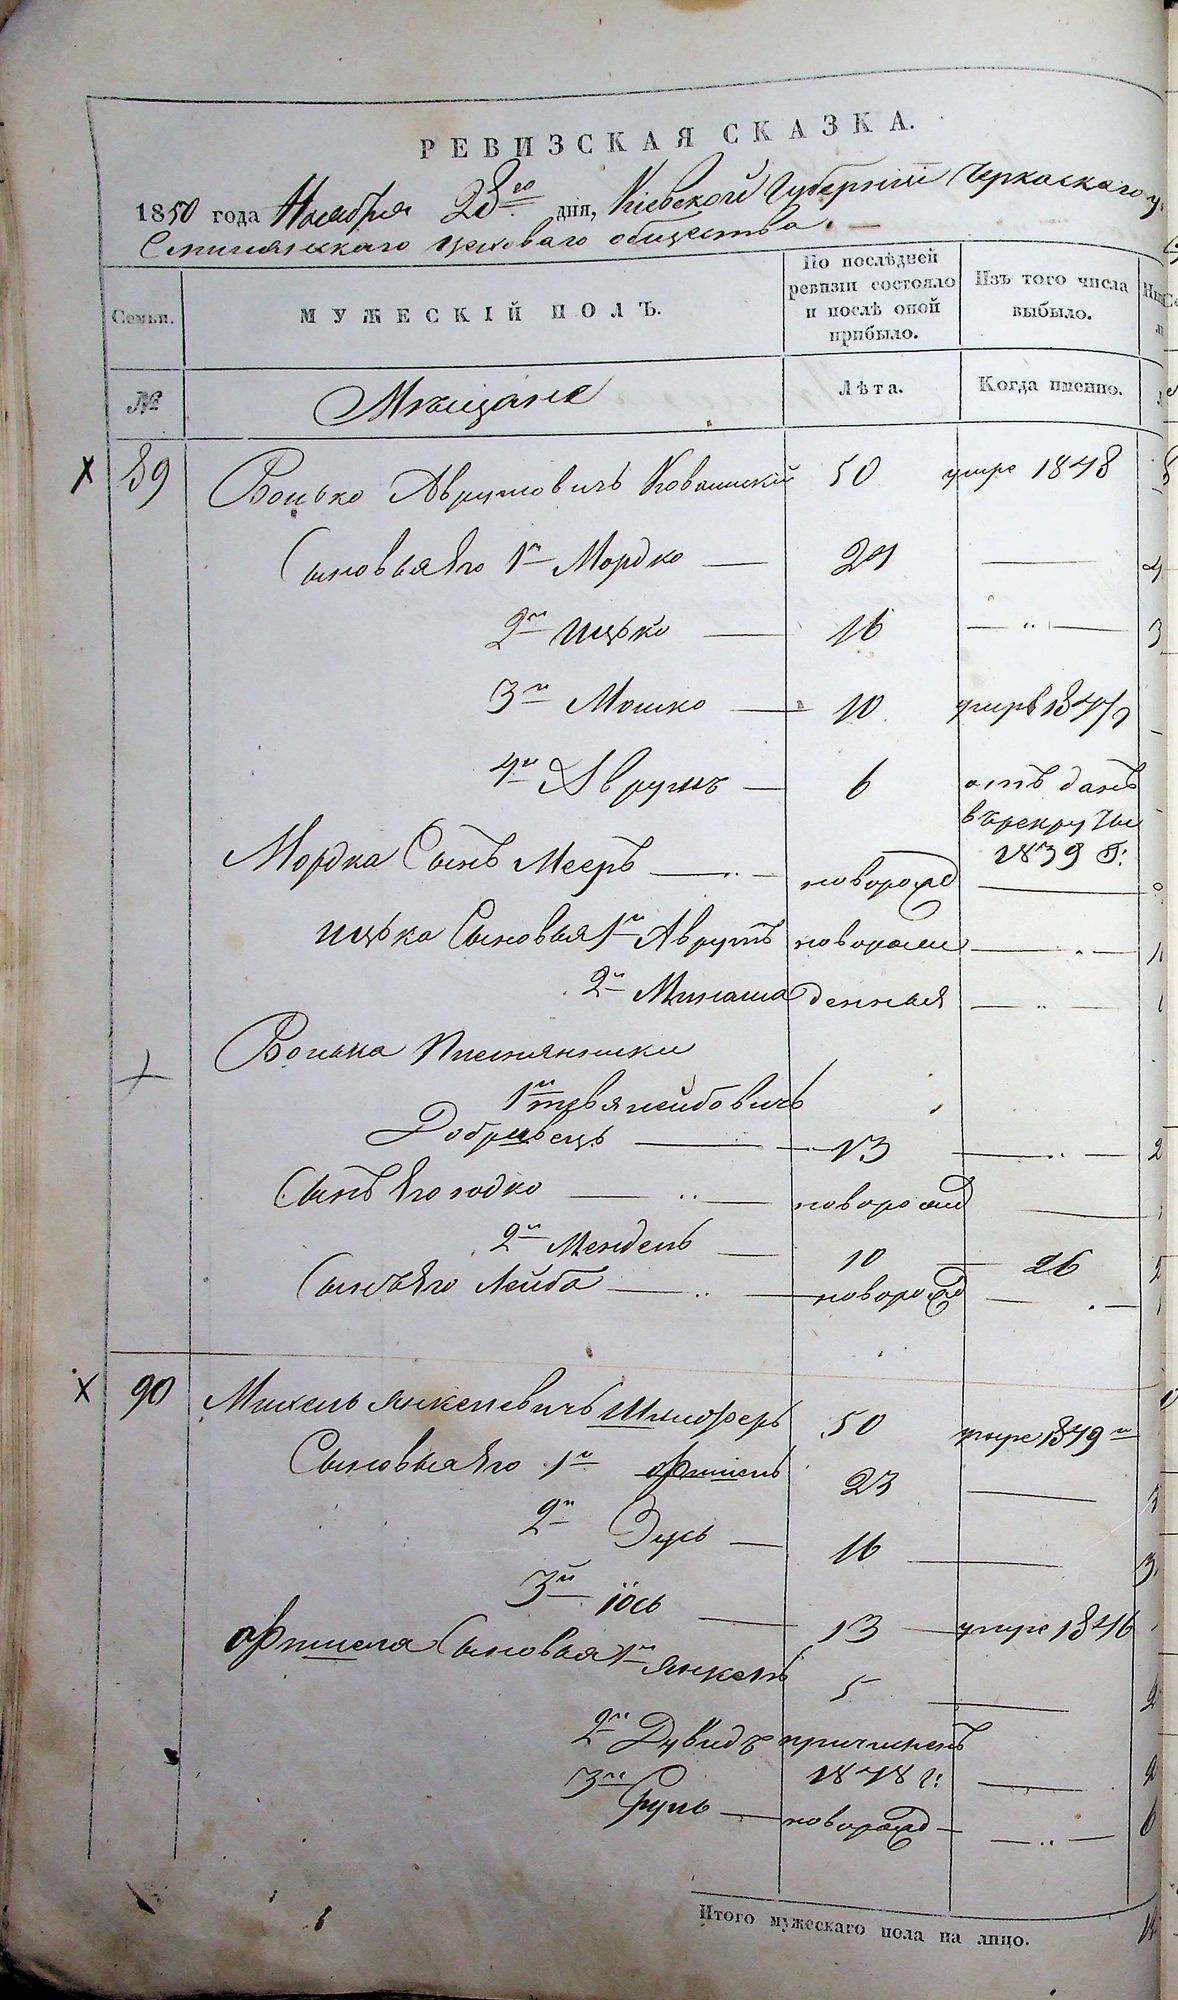 РЕВИЗСКАЯ СКАЗКА.
1850 года Ноября 28го дня, Кіевской Губерніи Черкаскаго у.
общества. —
Семьи. МУЖЕСКІЙ ПОЛЪ. По послѣдней ревизіи состояло и послѣ оной прибыло. Изъ того числа выбыло.
№ Мещане Лѣта. Когда именно.
Х 89 Волько Аврумовичъ 50 умре 1848
Сыновья Его 1й Мордко — 24 — 4
2й Ицько — 16 — „ — 3
3й Мошко — 10 умре
4й Аврумъ — 6 отъ данъ
въ рекруты
1839 г:
Мордка Сынъ Мееръ — „ — новорожд —
Ицька Сыновья 1й Аврумъ новорож — „ —
2й Минаша денныя — „ —
Волька Племянники
1й Тевя Лейбовичъ
Добривецъ — 13 — „ — 2
Сынъ Его Іодко — „ — новорожд —
2й Мендель — 10 — 26
Сынъ Его Лейба — „ — новорожд — „ —
Х 90 Михель Янкелевичъ Шлиоферъ 50 умре 1849
Сыновья Его 1й 23 —
2й — 16 — 3
3й Іось — 13 — умре 1846
Сыновья 1й Янкель 5 — 2
2й Дувидъ причисленъ
1848 г: — 2
3й Сруль — новорожд — „ — 6
Итого мужескаго пола на лицо.